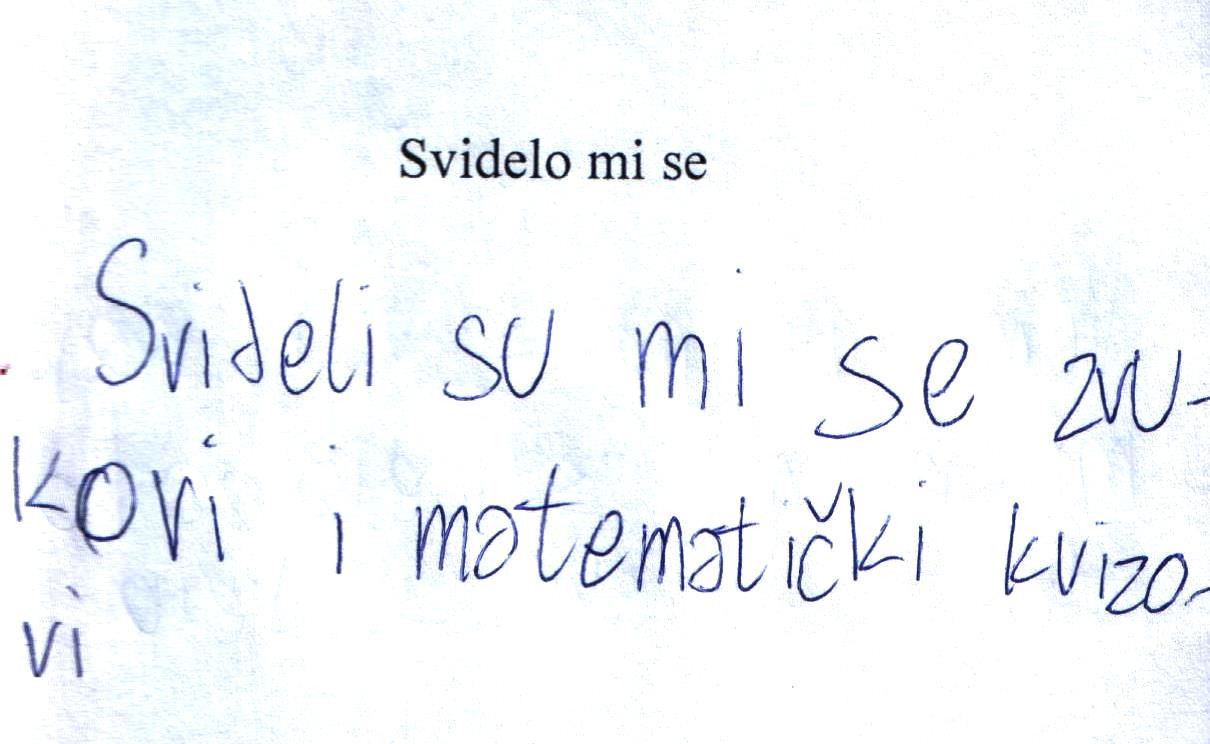 Svidelo mi se
Svideli su mi se zvu-
kovi i matematički kvizo-
vi